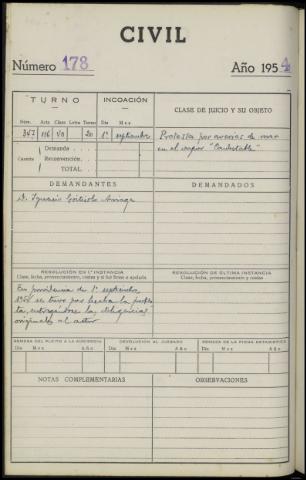 CIVIL
Número 178 Año 1954
TURNO
INCOACIÓN
CLASE DE JUICIO Y SU OBJETO
Núm. Auto Clase Letra Turno Día Mes
347 116 Va 20 1º septiembre
Protesta por averías de mar
en el vapor "Condestable"
Cuantía
Demanda
Reconvención
TOTAL
DEMANDANTES
DEMANDADOS
D. Ignacio Arriaga
RESOLUCIÓN EN 1.ª INSTANCIA
Clase, fecha, pronunciamiento, costas y si fué firme o apelada
RESOLUCIÓN DE ÚLTIMA INSTANCIA
Clase, fecha, pronunciamiento y costas
En providencia de 1º septiembre,
1954 se tuvo por hecha la protes-
ta, entregándose las diligencias
originales al actor
REMESA DEL PLEITO A LA AUDIENCIA
DEVOLUCIÓN AL JUZGADO
REMESA DE LA FICHA ESTADÍSTICA
Día Mes Año Día Mes Año Día Mes Año
NOTAS COMPLEMENTARIAS
OBSERVACIONES